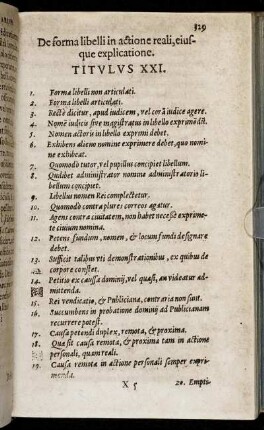 329
De forma libelli in actione reali, eius-
que explicatione.
TITVLVS XXI.
1. Forma libelli non articulati.
2. Forma libelli articulati.
3. Rectè dicitur, apud iudicem, vel corā iudice agere.
4. Nomē iudicis siue magistratus in libello exprimēdū.
5. Nomen actoris in libello exprimi debet.
6. Exhibens alieno nomine exprimere debet, quo nomi-
ne exhibeat.
7. Quomodo tutor, vel pupillus concipiet libellum.
8. Quidbet administrator nomine administratoris li-
bellum concipiet.
9. Libellus nomen Rei complectetur.
10. Quomodo contra plures correos agatur.
11. Agens contra ciuitatem, non habet necesse exprime-
re ciuium nomina.
12. Petens fundum, nomen, & locum fundi designare
debet.
13. Sufficit talibus vti demonstrationibus, ex quibus de
corpore constet.
14. Petitio ex caussa dominij, vel quasi, an videatur ad-
mittenda.
15. Rei vendicatio, & Publiciana, contraria non sunt.
16. Succumbens in probatione dominij ad Publicianam
recurrere potest.
17. Causa petendi duplex, remota, & proxima.
18. Quæ sit causa remota, & proxima tam in actione
personali, quam reali.
19. Causa remota in actione personali semper expri-
menda.
X 5 20. Empti-